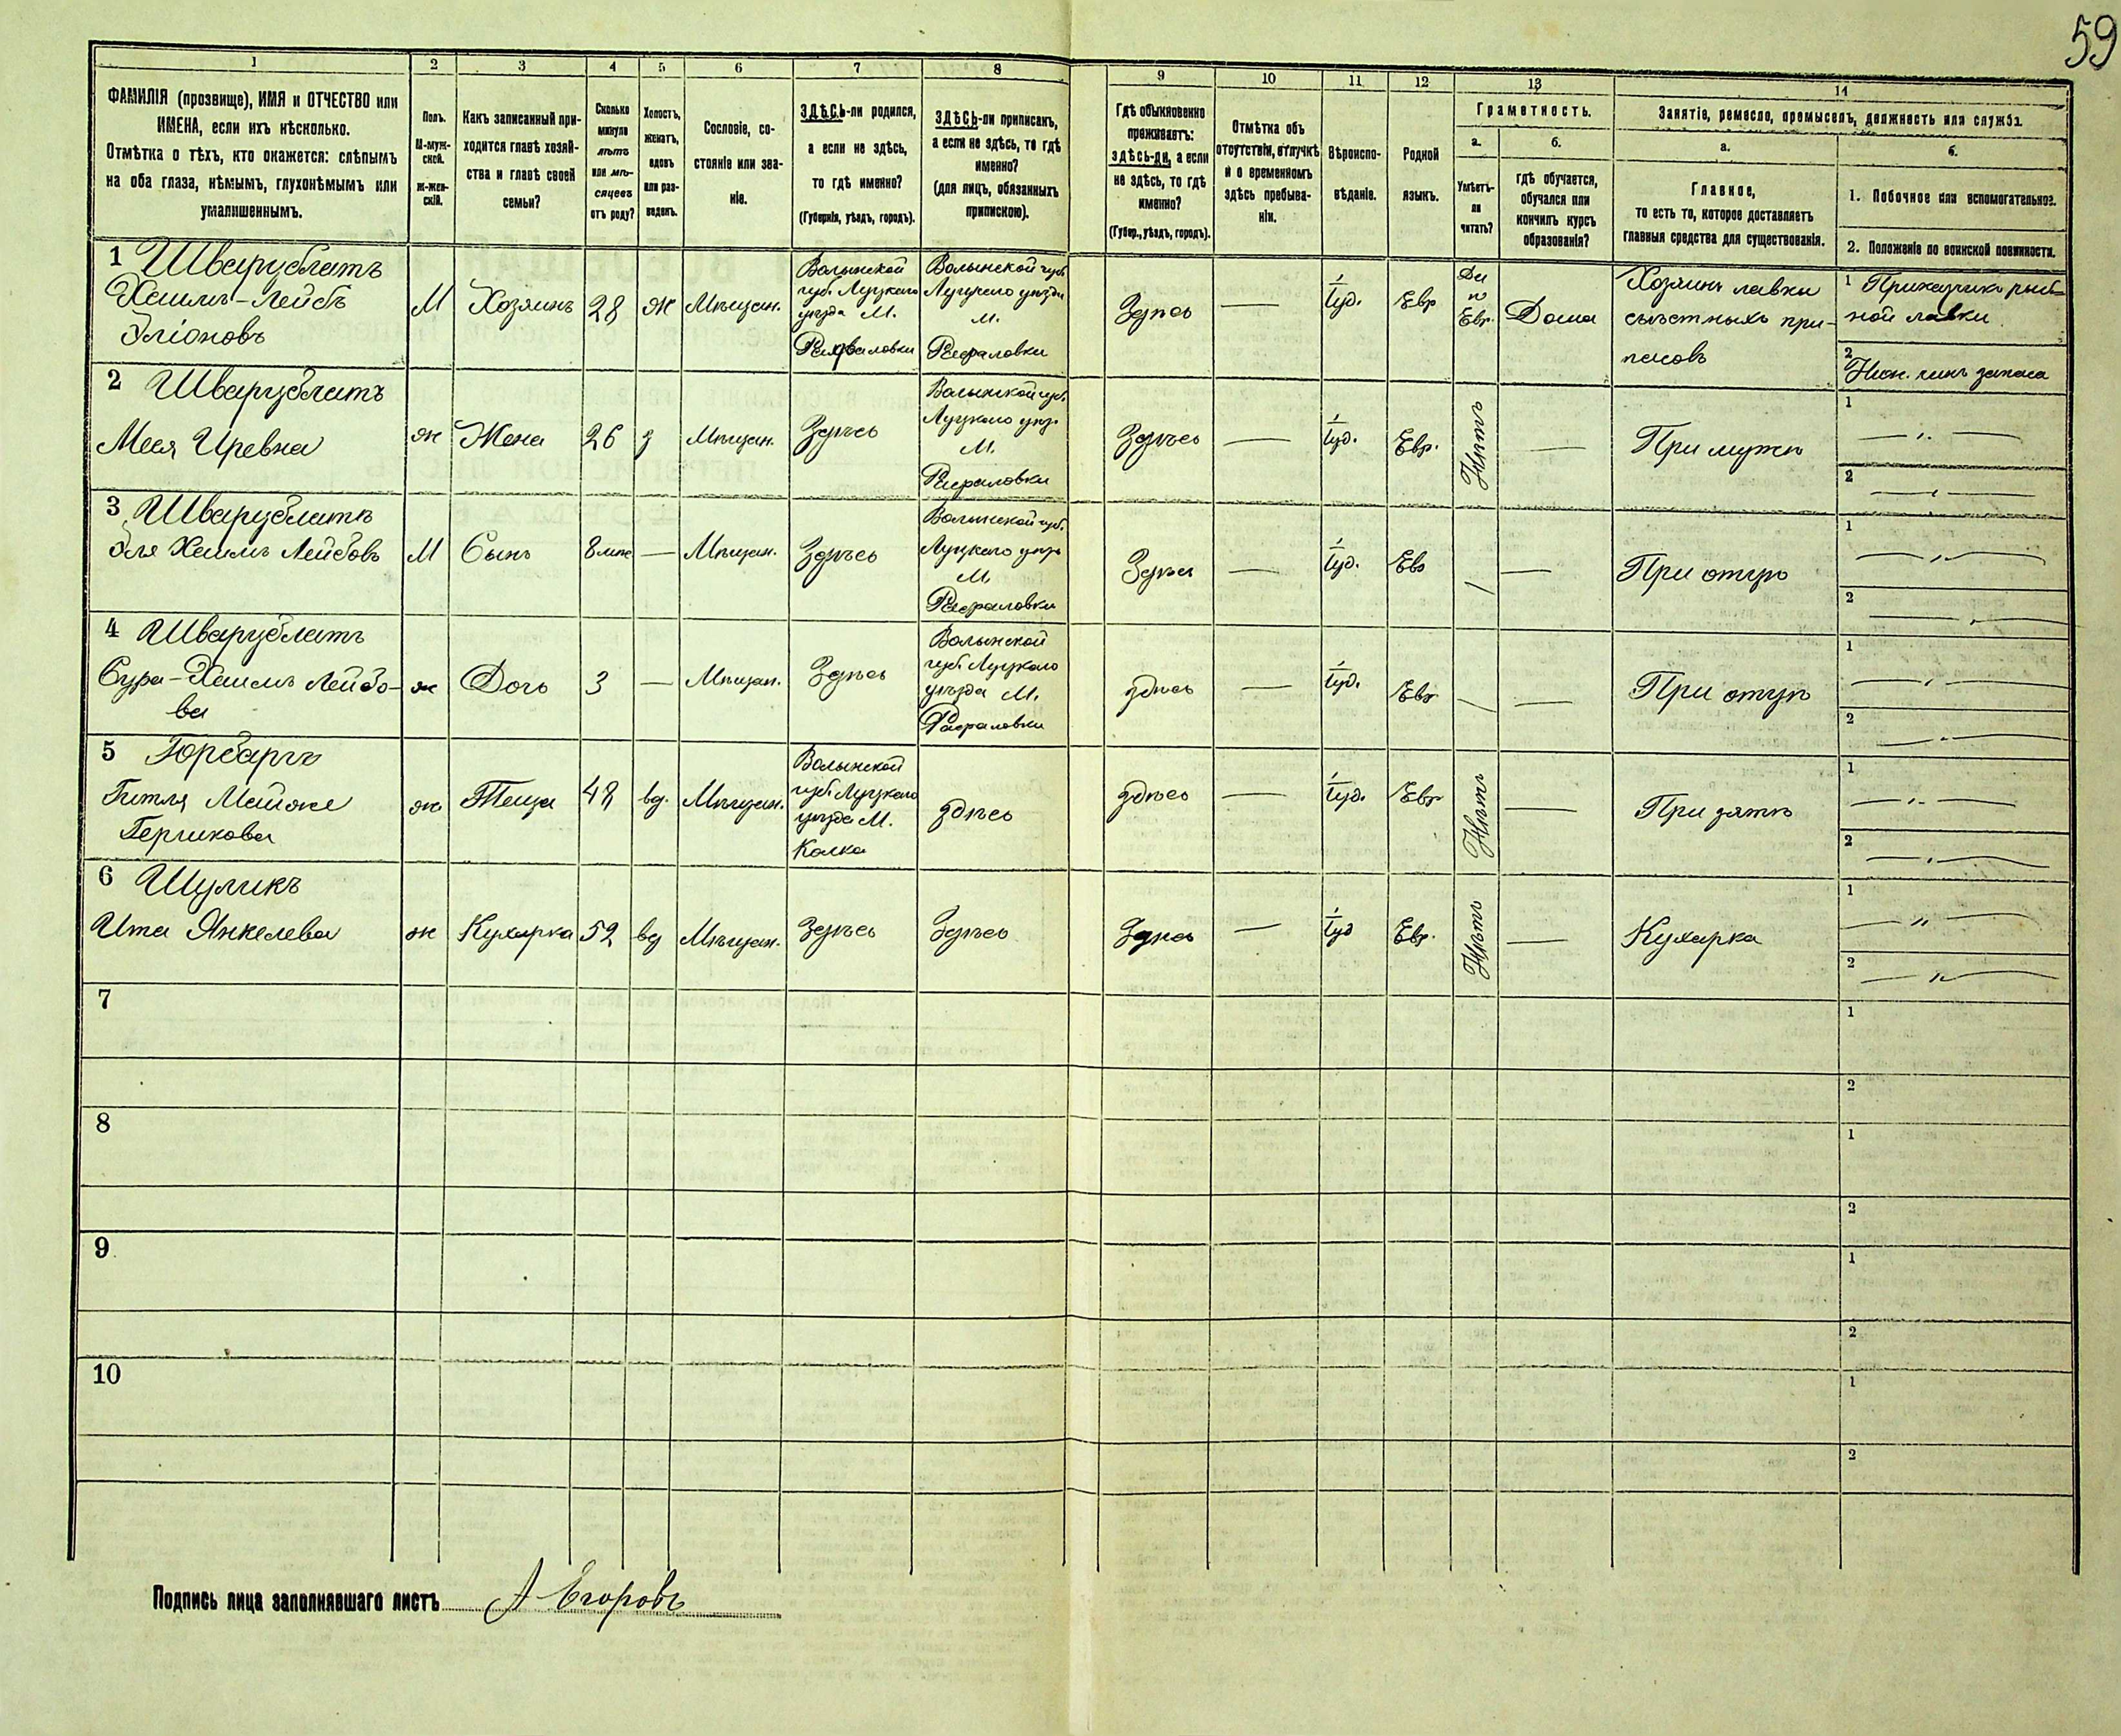 59
1
2
3
4
5
6
7
8
9
10
11
12
13
14
ФАМИЛІЯ (прозвище), ИМЯ и ОТЧЕСТВО или
ИМЕНА, если ихъ нѣсколько.
Отмѣтка о тѣхъ, кто окажется: слѣпымъ
на оба глаза, нѣмымъ, глухонѣмымъ или
умалишеннымъ.
Полъ.
М-муж-
ской.
Ж-жен-
скій.
Какъ записанный при-
ходится главѣ хозяй-
ства и главѣ своей
семьи?
Сколько
минуло
лѣтъ
или мѣ-
сяцевъ
отъ роду?
Холостъ,
женатъ,
вдовъ
или раз-
веденъ.
Сословіе, со-
стояніе или зва-
ніе.
ЗДѢСЬ-ли родился,
а если не здѣсь,
то гдѣ именно?
(Губернія, уѣздъ, городъ).
ЗДѢСЬ-ли приписанъ,
а если не здѣсь, то гдѣ
именно?
(для лицъ, обязанныхъ
припискою).
Гдѣ обыкновенно
проживаетъ:
здѣсь-ли, а если
не здѣсь, то гдѣ
именно?
(Губер., уѣздъ, городъ).
Отмѣтка объ
отсутствіи, отлучкѣ
и о временномъ
здѣсь пребыва-
ніи.
Вѣроиспо-
вѣданіе.
Родной
языкъ.
Грамотность.
а.
Умѣетъ-
ли
читать?
б.
гдѣ обучается,
обучался или
кончилъ курсъ
образованія?
Занятіе, ремесло, промыселъ, должность или служба.
а.
Главное,
то есть то, которое доставляетъ
главныя средства для существованія.
б.
1. Побочное или вспомогательное.
2. Положеніе по воинской повинности.
1 Шварцблатъ
Хаимъ-Лейбъ
Эліоновъ
М
Хозяинъ
28
Ж
Мѣщан.
Волынской
губ. Луцкаго
уѣзда М.
Рафаловки
Волынской губ.
Луцкаго уѣзда
М.
Рафаловки
Здѣсь
—
Іуд.
Евр
Да
п
Евр.
Дома
Хозяинъ лавки
съѣстныхъ при-
пасовъ
1 Приказчикъ рыб-
ной лавки
2 Ниж. чинъ запаса
2 Шварцблатъ
Меся Иревна
ж
Жена
26
з
Мѣщан.
Здѣсь
Волынской губ.
Луцкаго уѣз.
М.
Рафаловки
Здѣсь
—
Іуд.
Евр.
Нѣтъ
—
При мужѣ
1 — „ —
2 — „ —
3 Шварцблатъ
Эля Хаимъ Лейбовъ
М
Сынъ
—
Мѣщан.
Здѣсь
Волынской губ.
Луцкаго уѣз.
М.
Рафаловки
Здѣсь
—
Іуд.
Евр
/
—
При отцѣ
1 — „ —
2 — „ —
4 Шварцблатъ
Сура-Хаимъ Лейбо-
ва
ж
Дочь
3
—
Мѣщан.
Здѣсь
Волынской
губ. Луцкаго
уѣзда М.
Рафаловки
здѣсь
—
Іуд.
Евр
/
—
При отцѣ
1 — „ —
2 — „ —
5
Гитля Малка
Гершкова
ж
Теща
48
вд.
Мѣщан.
Волынской
губ. Луцкаго
уѣзда М.
Колка
здѣсь
здѣсь
—
Іуд.
Евр
Нѣтъ
—
При зятѣ
1 — „ —
2 — „ —
6 Шуликъ
Ита Янкелева
ж
Кухарка
52
вд
Мѣщан.
Здѣсь
Здѣсь
Здѣсь
—
Іуд
Евр.
Нѣтъ
—
Кухарка
1 — „ —
2 — „ —
7
1
2
8
1
2
9
1
2
10
1
2
Подпись лица заполнявшаго листъ А Егоровъ